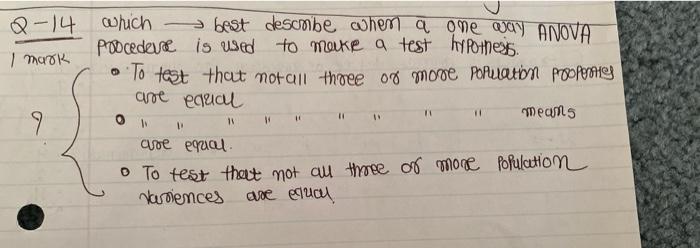 Q-14 which → best describe when a one way ANOVA
1 mark procedure is used to make a test hypothesis.
• To test that not all three or more population proporties
are equal
• " " " " " " " " " means
are equal.
? • To test that not all three or more population
variences are equal.